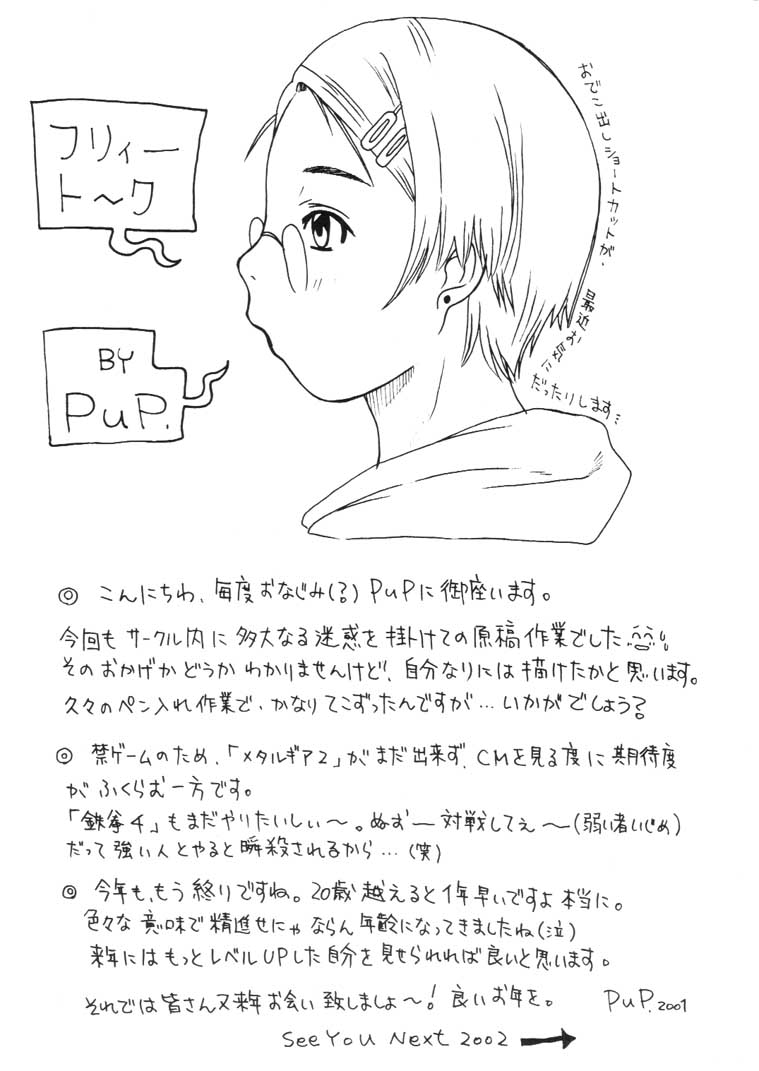 フリィー
ト〜ク
BY
PuP.
おでこ出しショートカットが、
最近お気に
だったりします…
◎ こんにちわ、毎度おなじみ(?) PuPに御座います。
今回もサークル内に多大なる迷惑を掛けての原稿作業でした
そのおかげかどうかわかりませんけど、自分なりには描けたかと思います。
久々のペン入れ作業で、かなりてこずったんですが…いかがでしょう?
◎ 禁ゲームのため、「メタルギア2」がまだ出来ず、CMを見る度に期待度
がふくらむ一方です。
「鉄拳4」もまだやりたいしぃ〜。ぬおー対戦してぇ〜(弱い者いじめ)
だって強い人とやると瞬殺されるから…(笑)
◎ 今年も、もう終りですね。20歳越えると1年早いですよ本当に。
色々な意味で精進せにゃならん年齢になってきましたね(泣)
来年にはもっとレベルUPした自分を見せられれば良いと思います。
それでは皆さん又来年お会い致しましょ〜! 良いお年を。 PuP. 2001
See You Next 2002